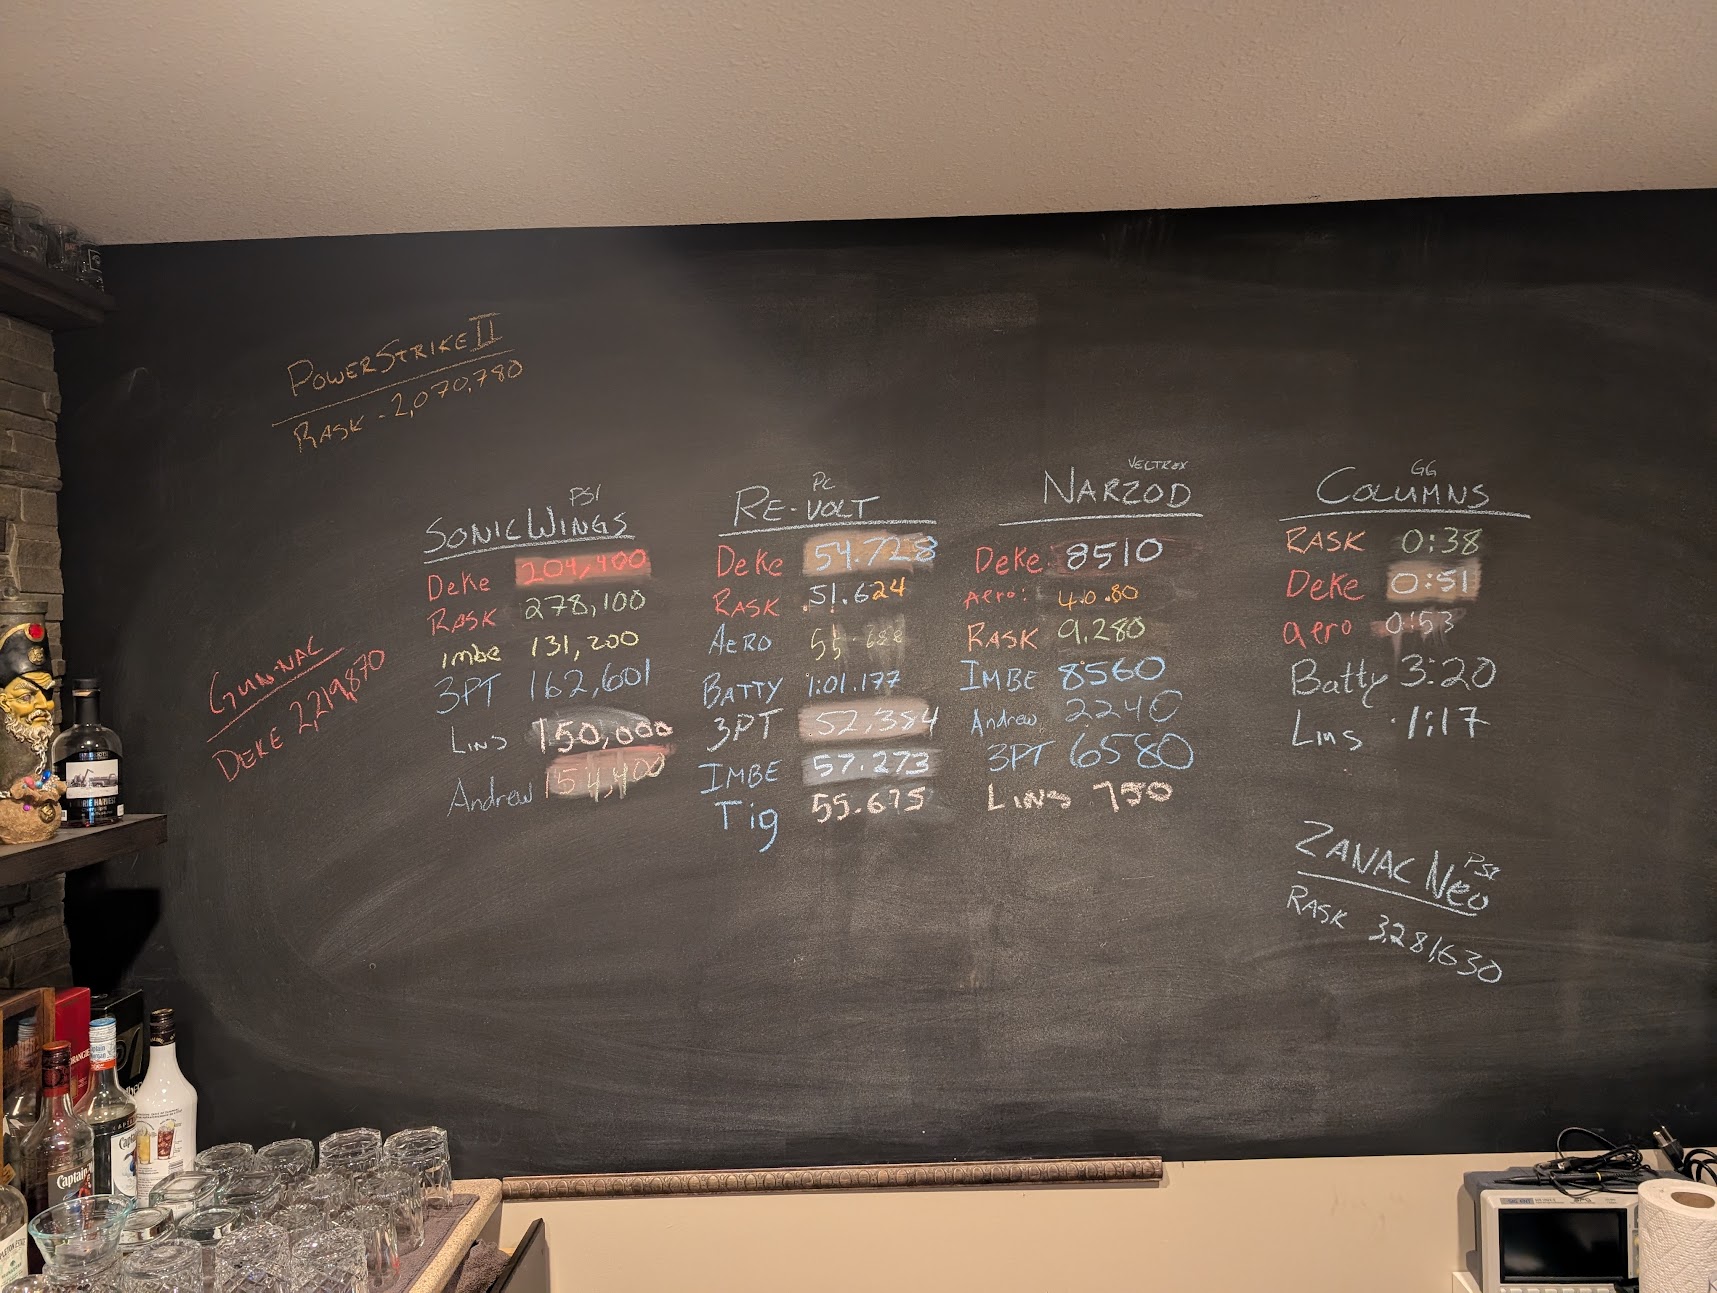 POWERSTRIKE II
RASK - 2,070,780
GUN-NAC
DEKE 2,219,870
PS1
SONIC WINGS
Deke 204,400
RASK 278,100
imbe 131,200
3PT 162,601
Lins 150,000
Andrew 154,400
PC
RE-VOLT
Deke 54.728
RASK 51.624
AERO 55.688
BATTY 1:01.177
3PT 52,384
IMBE 57.273
Tig 55.675
VECTREX
NARZOD
Deke 8510
Aero: 40.80
RASK 9,280
IMBE 8560
Andrew 2240
3PT 6580
LINS 750
GG
COLUMNS
RASK 0:38
Deke 0:51
aero 0:53
Batty 3:20
Lins 1:17
PS1
ZANAC Neo
RASK 3,281,630
Captain